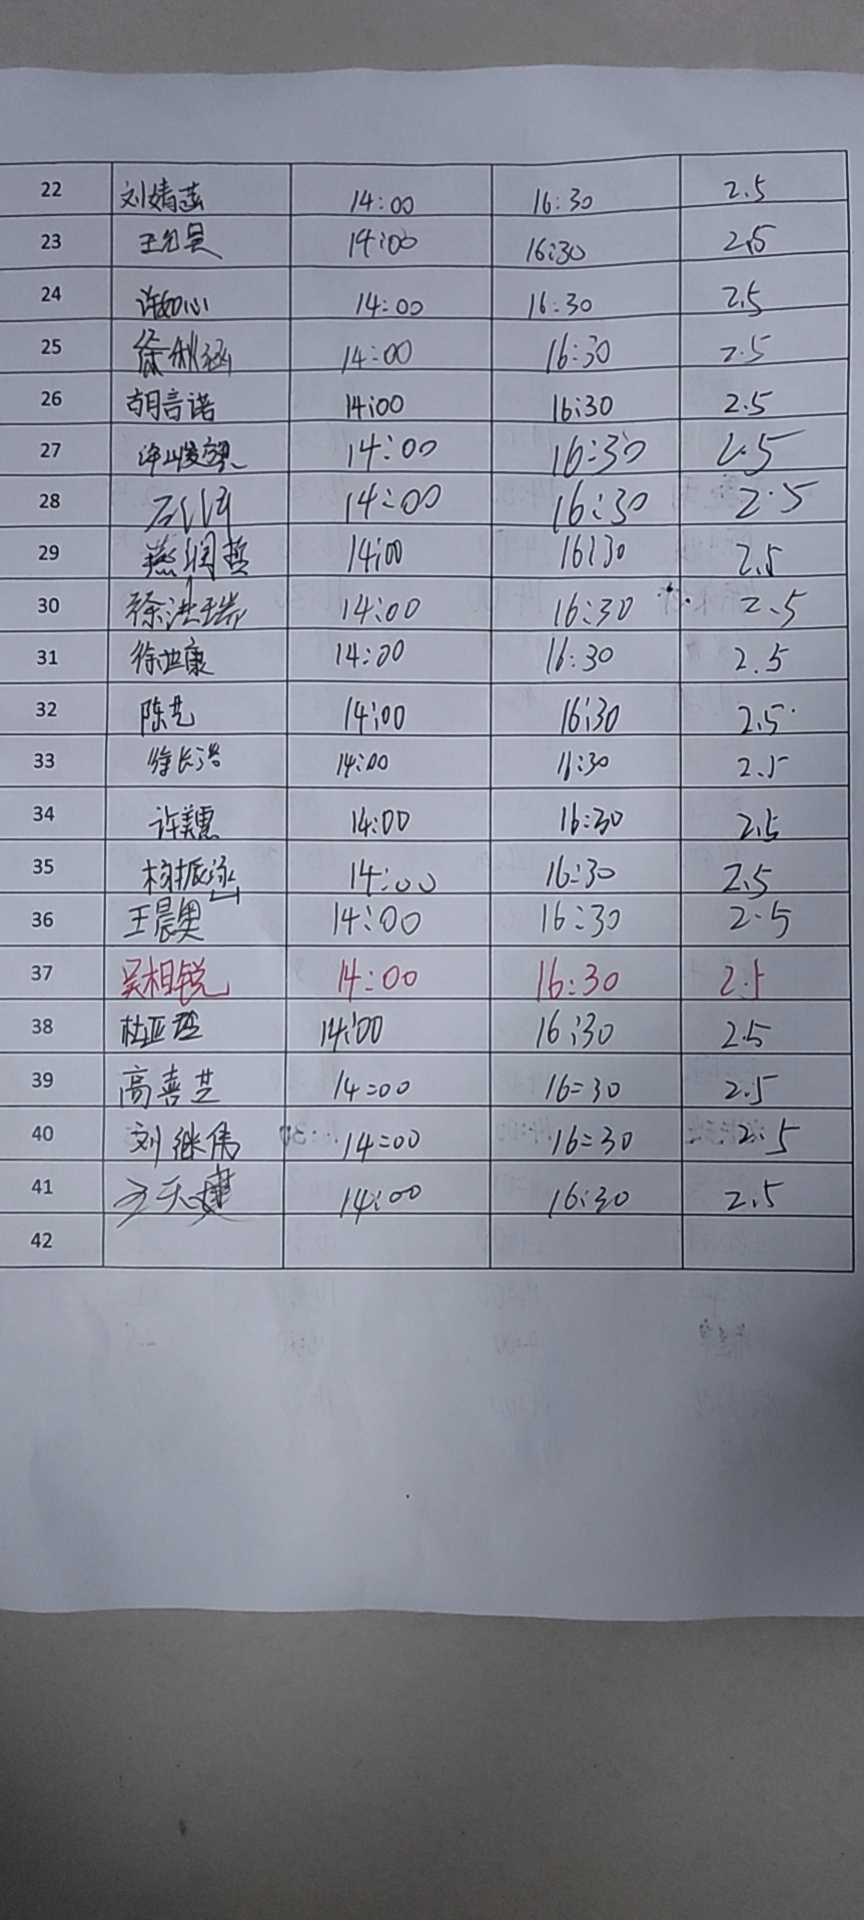 22 刘婧菡 14:00 16:30 2.5
23 王允昊 14:00 16:30 2.5
24 许如心 14:00 16:30 2.5
25 徐秋涵 14:00 16:30 2.5
26 胡言诺 14:00 16:30 2.5
27 14:00 16:30 2.5
28 14:00 16:30 2.5
29 燕润哲 14:00 16:30 2.5
30 徐洪瑞 14:00 16:30 2.5
31 徐世康 14:00 16:30 2.5
32 陈艺 14:00 16:30 2.5
33 徐长浩 14:00 16:30 2.5
34 许美惠 14:00 16:30 2.5
35 杨振泳 14:00 16:30 2.5
36 王晨奥 14:00 16:30 2.5
37 吴相锐 14:00 16:30 2.5
38 14:00 16:30 2.5
39 高喜芝 14:00 16:30 2.5
40 刘继伟 14:00 16:30 2.5
41 14:00 16:30 2.5
42